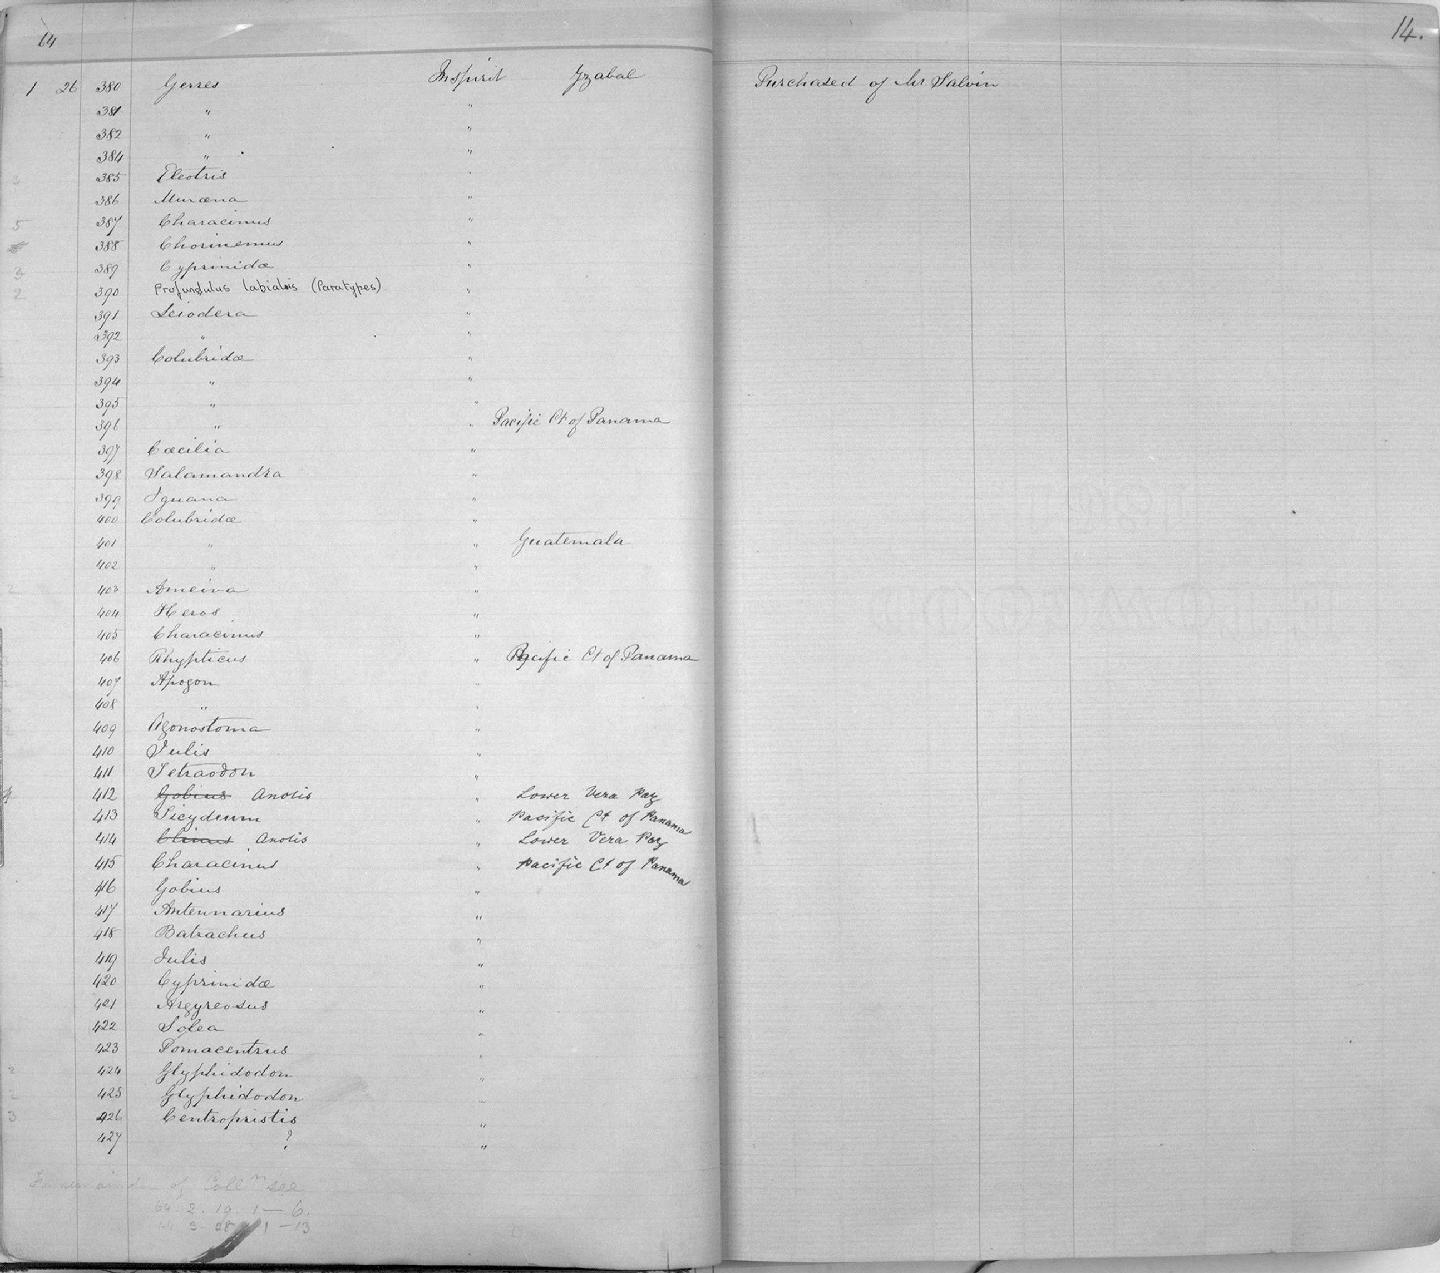 14
14.
1 26 380 Gerres Inspirit Yzabal Purchased of Mr Salvin
381 " "
382 " "
384 " "
385 Eleotris "
386 Muræna "
5 387 Characinus "
388 Chorinemus "
3 389 Cyprinidæ "
2 390 Profundulus labialis (Paratypes) "
391 Leiodera "
392 " "
393 Colubridæ "
394 " "
395 " "
396 " " Pacific Ct of Panama
397 Cæcilia "
398 Salamandra "
399 Iguana "
400 Colubridæ "
401 " " Guatemala
402 " "
2 403 Ameiva "
404 Heros "
405 Characinus "
406 Rhypticus " Pacific Ct of Panama
407 Apogon "
408 " "
409 Agonostoma "
410 Julis "
411 Tetraodon "
4 412 Gobius Anolis " Lower Vera Paz
413 Sicydium " Pacific Ct of Panama
414 Clinus Anolis " Lower Vera Paz
415 Characinus " Pacific Ct of Panama
416 Gobius "
417 Antennarius "
418 Batrachus "
419 Julis "
420 Cyprinidæ "
421 Argyreosus "
422 Solea "
423 Pomacentrus "
2 424 Glyphidodon "
2 425 Glyphidodon "
3 426 Centropristis "
427 ? "
of Colln see
64. 2. 19. 1–6.
3. 28. 1–13